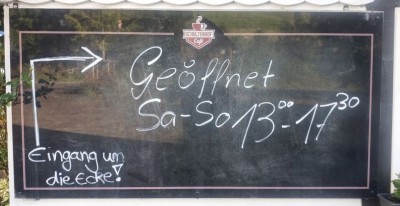 Café
Geöffnet
Sa-So 13⁰⁰-17³⁰
Eingang um
die Ecke!